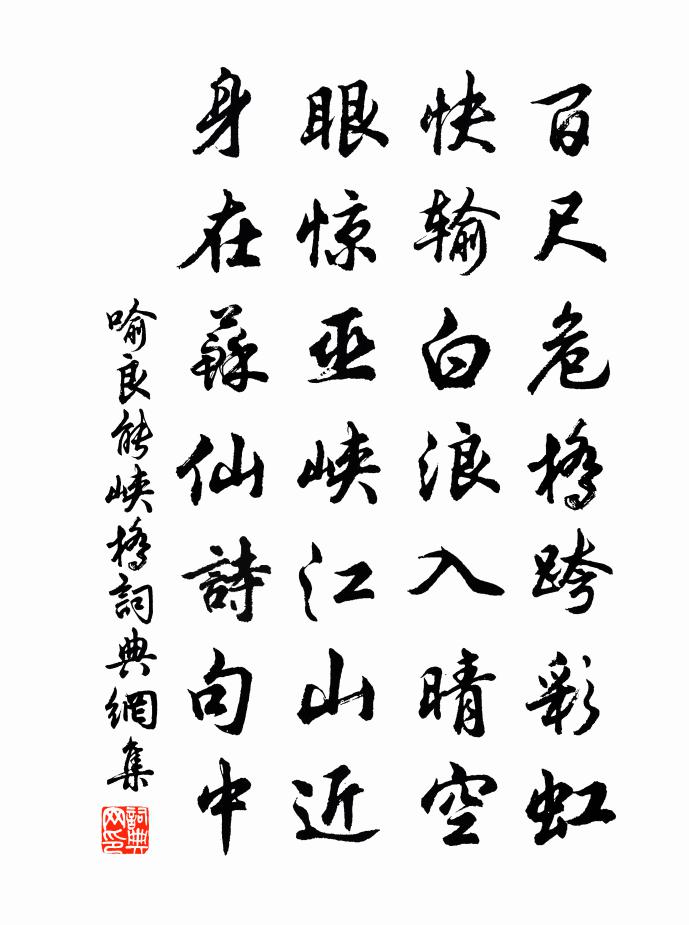 百尺危橋跨彩虹
快输白浪入晴空
眼惊巫峡江山近
身在蘇仙詩句中
喻良能峡橋詞典網集
詞典网印